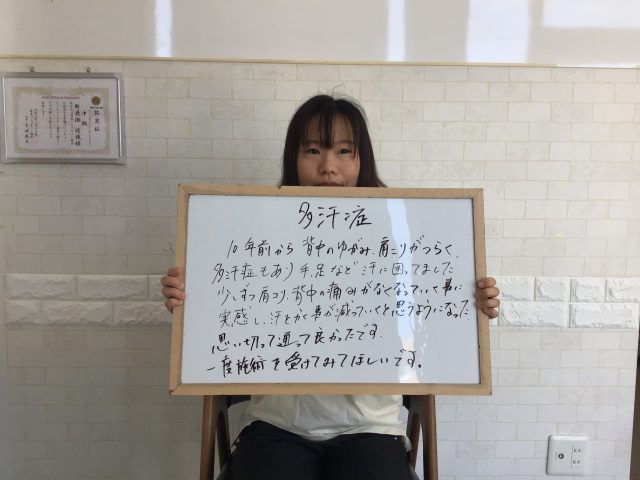 認定証
中級
多汗症
10年前から背中のゆがみ、肩こりがつらく、
多汗症もあり手足など汗に困ってました
少しずつ肩コリ、背中の痛みがなくなっていく事に
実感し、汗をかく事が減っていくと思うようになった
思い切って通って良かったです。
一度施術を受けてみてほしいです。